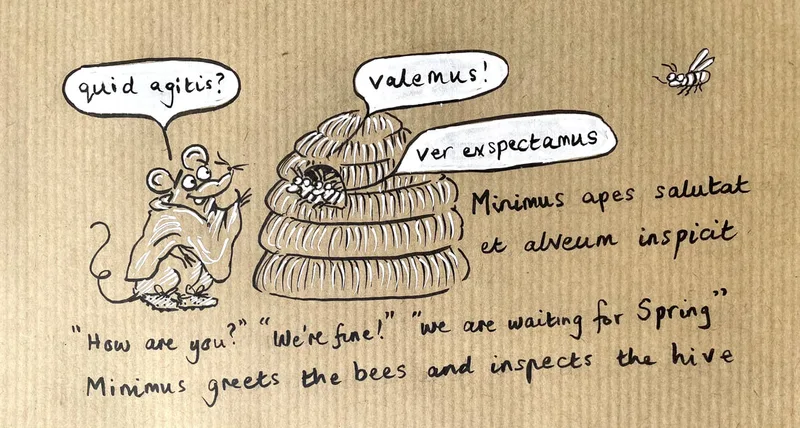 quid agitis?
valemus!
ver exspectamus
Minimus apes salutat
et alveum inspicit
"How are you?" "We're fine!" "we are waiting for Spring"
Minimus greets the bees and inspects the hive